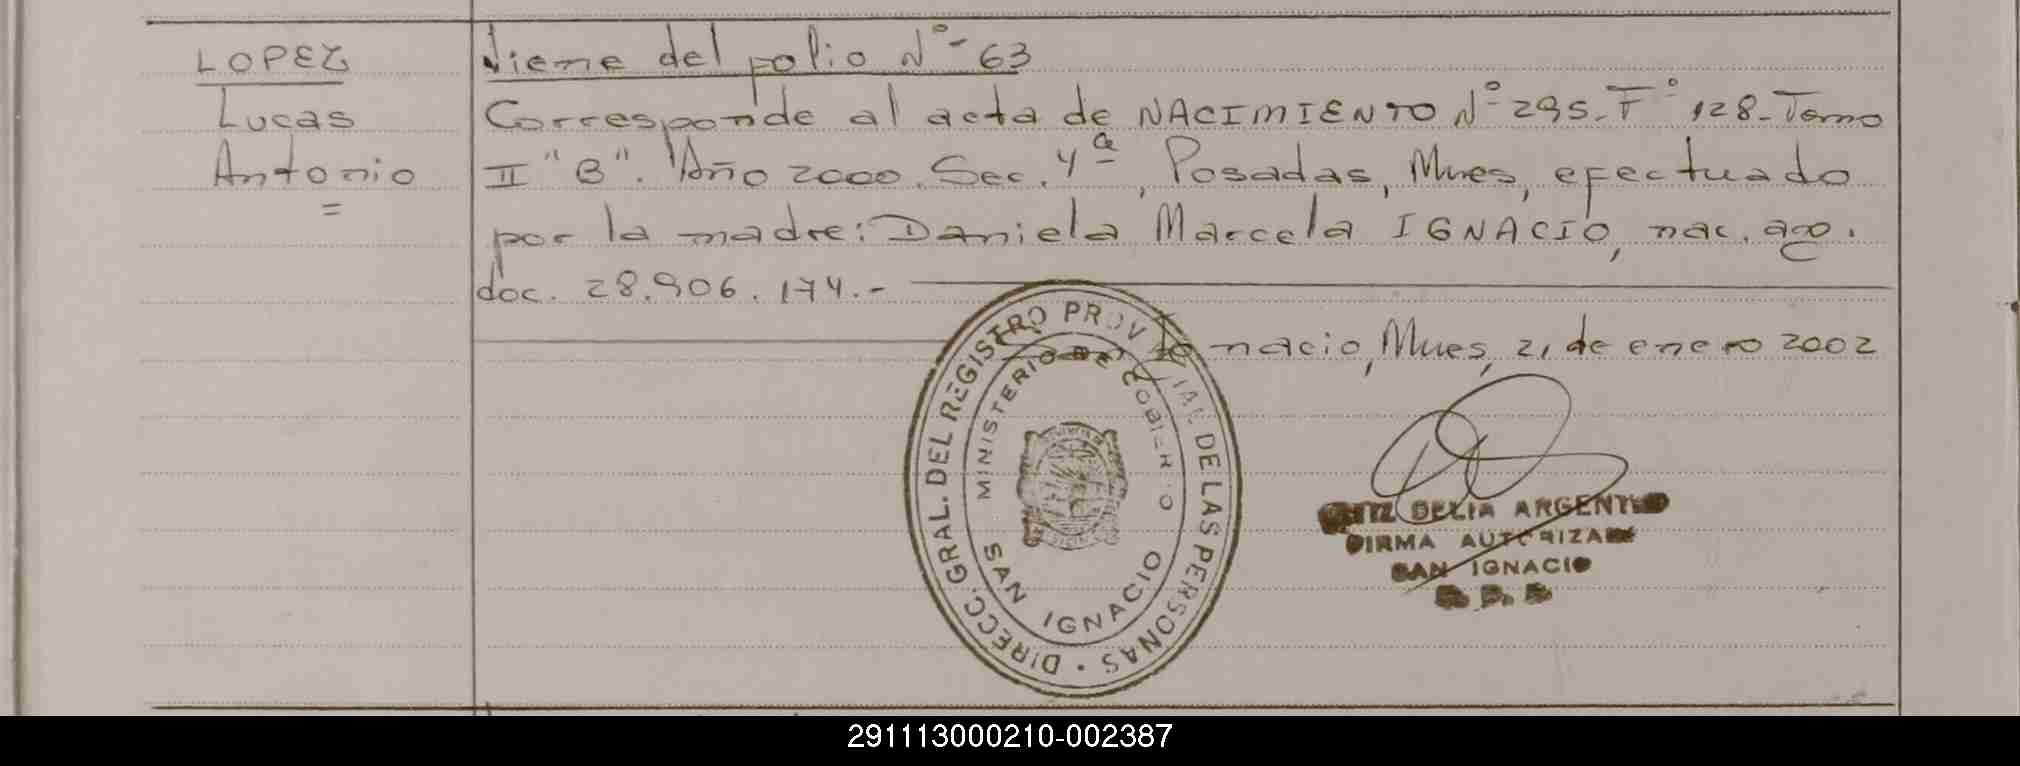 LOPEZ
Lucas
Antonio
=
Viene del folio Nº- 63
Corresponde al acta de NACIMIENTO Nº 295-Fº 128-Tomo
II "B". Año 2000. Sec. 4ª, Posadas, Mnes, efectuado
por la madre: Daniela Marcela IGNACIO, nac. arg.
doc. 28.906.174.-
Ignacio, Mnes, 21 de enero 2002
DIRECC. GRAL. DEL REGISTRO PROVINCIAL DE LAS PERSONAS
MINISTERIO DE GOBIERNO
SAN IGNACIO
DELIA ARGENTINO
FIRMA AUTORIZADA
SAN IGNACIO
291113000210-002387